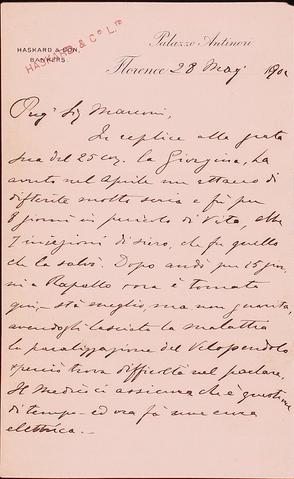 HASKARD & SON,
BANKERS.
HASKARD & Co. LTD
Palazzo Antinori
Florence 28 Mag' 190
Preg. Sig Marconi,
In replica alla grata
sua del 25 co/. la Giorgina, ha
avuto nel Aprile un attacco di
difterite molto seria e fu per
8 giorni in pericolo di Vita, ebbe
7 iniezioni di siero, che fu quello
che la salvò. Dopo andò per 15 gior
ni a Rapallo ora è tornata
qui, – stà meglio, ma non guarita,
avendogli lasciato la malattia
la paralizzazione del Velopendolo
e perciò trova difficoltà nel parlare,
Il Medico ci assicura che è questione
di tempo – ed ora fà una cura
elettrica. –